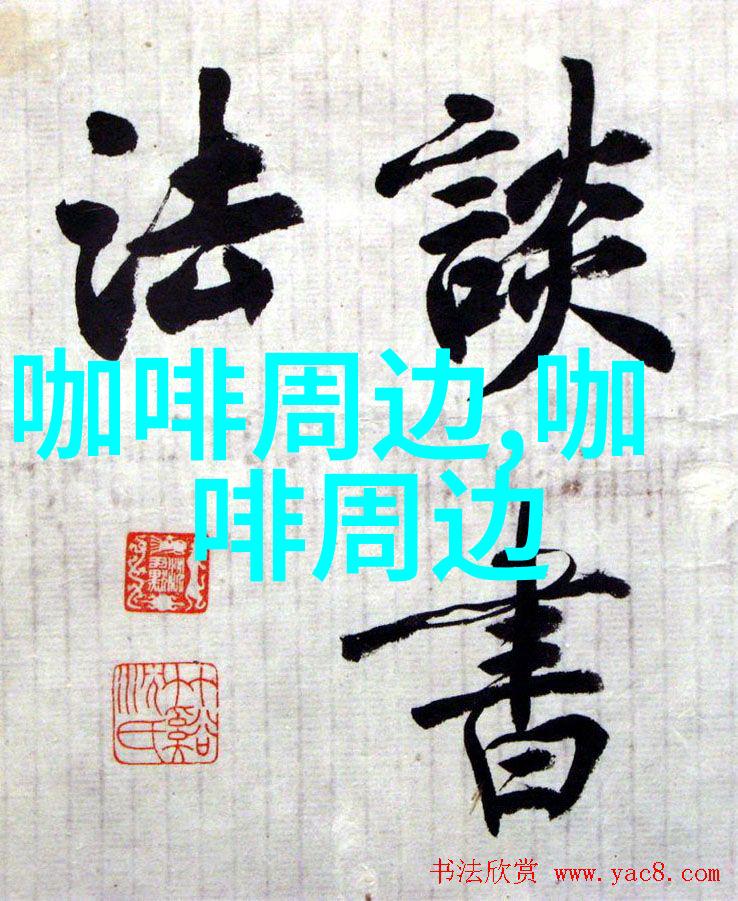 談書
法
咖啡周边,咖
啡周边
竹谿
沈氏
书法欣赏 www.yac8.com